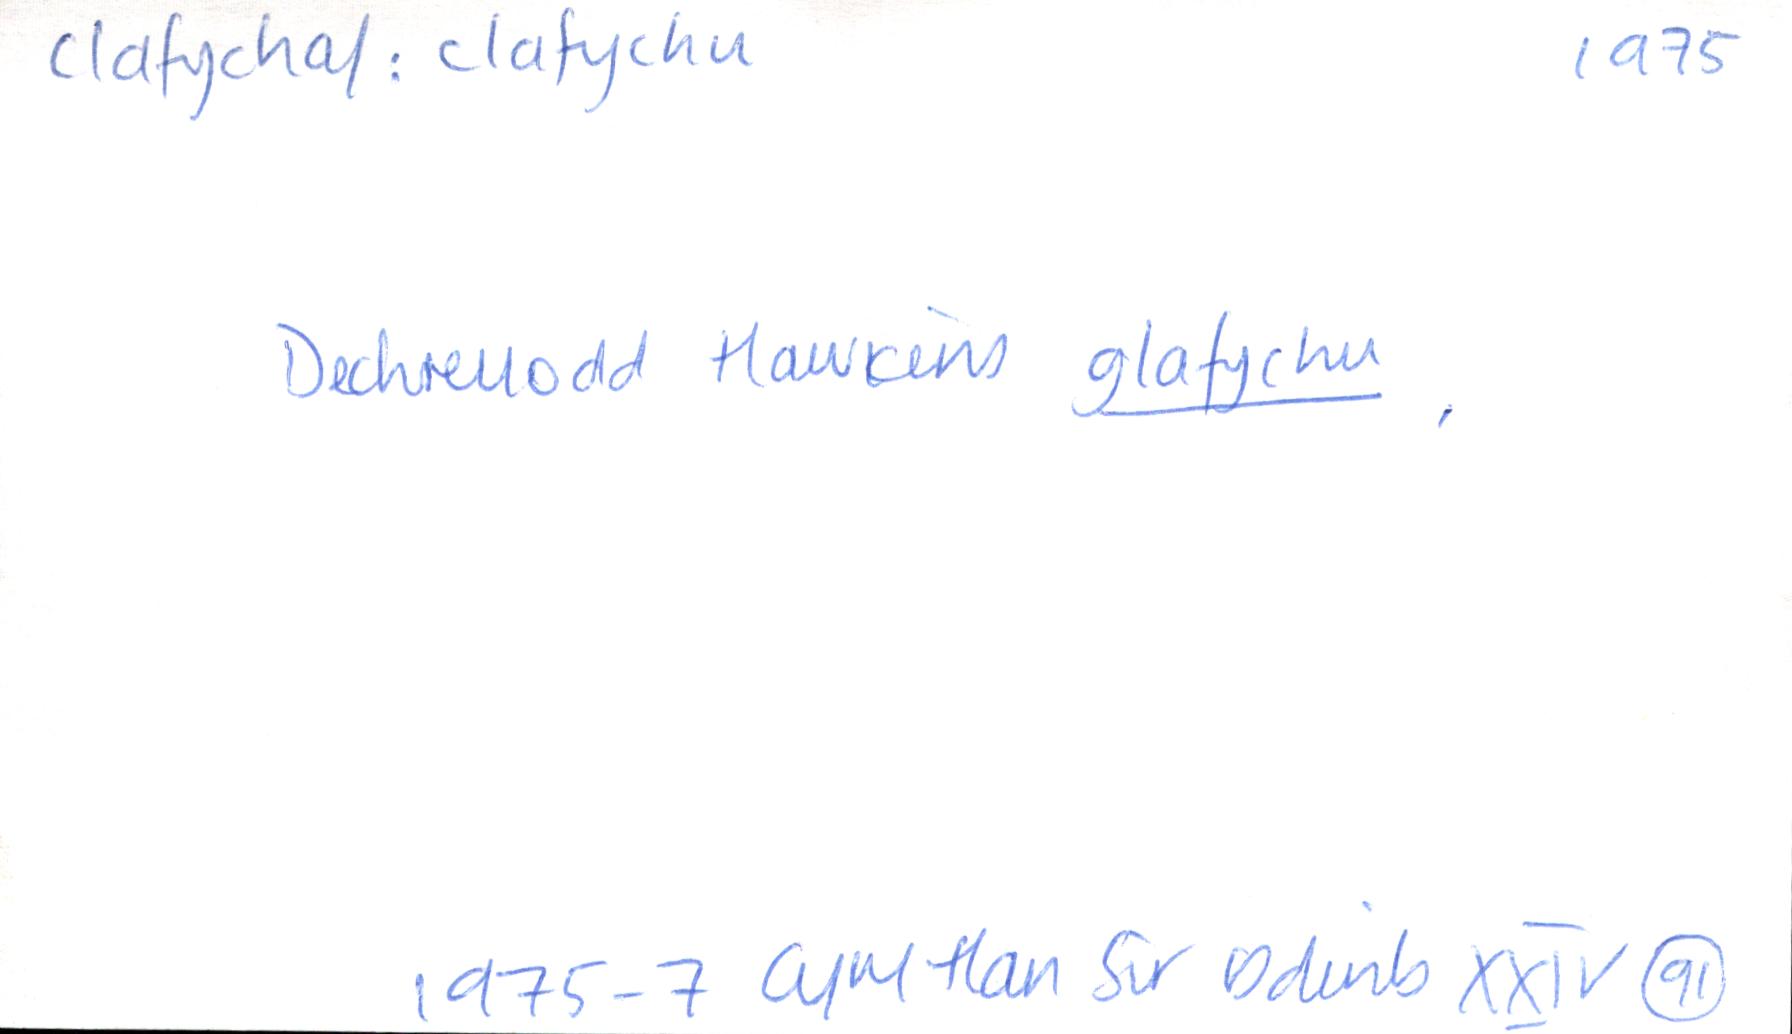 clafychaf: clafychu 1975
Dechreuodd Hawkins glafychu,
1975-7 Cym Han Sir Ddinb XXIV 91